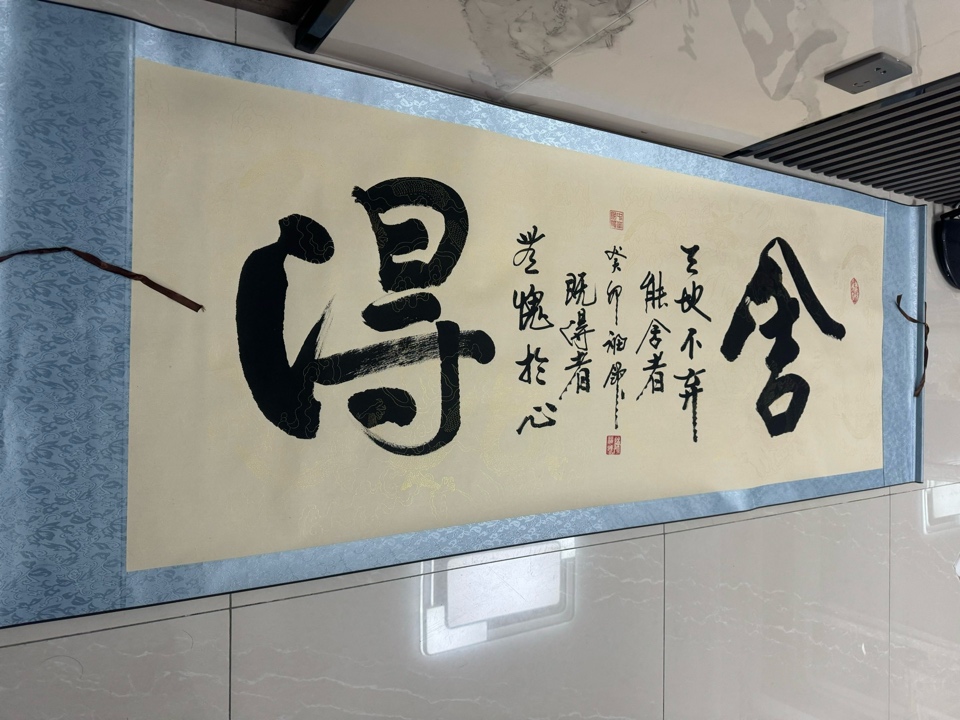 舍
天地不弃
能舍者
癸卯
既得者
無愧於心
得